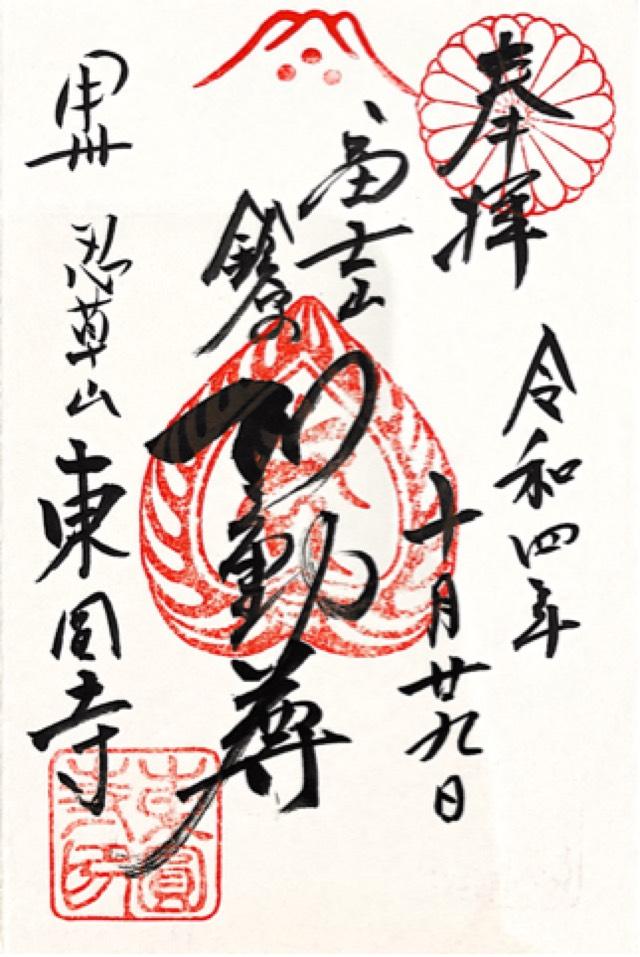 奉拝
令和四年
十月廿九日
富士山
不動尊
甲州 忍草山 東圓寺